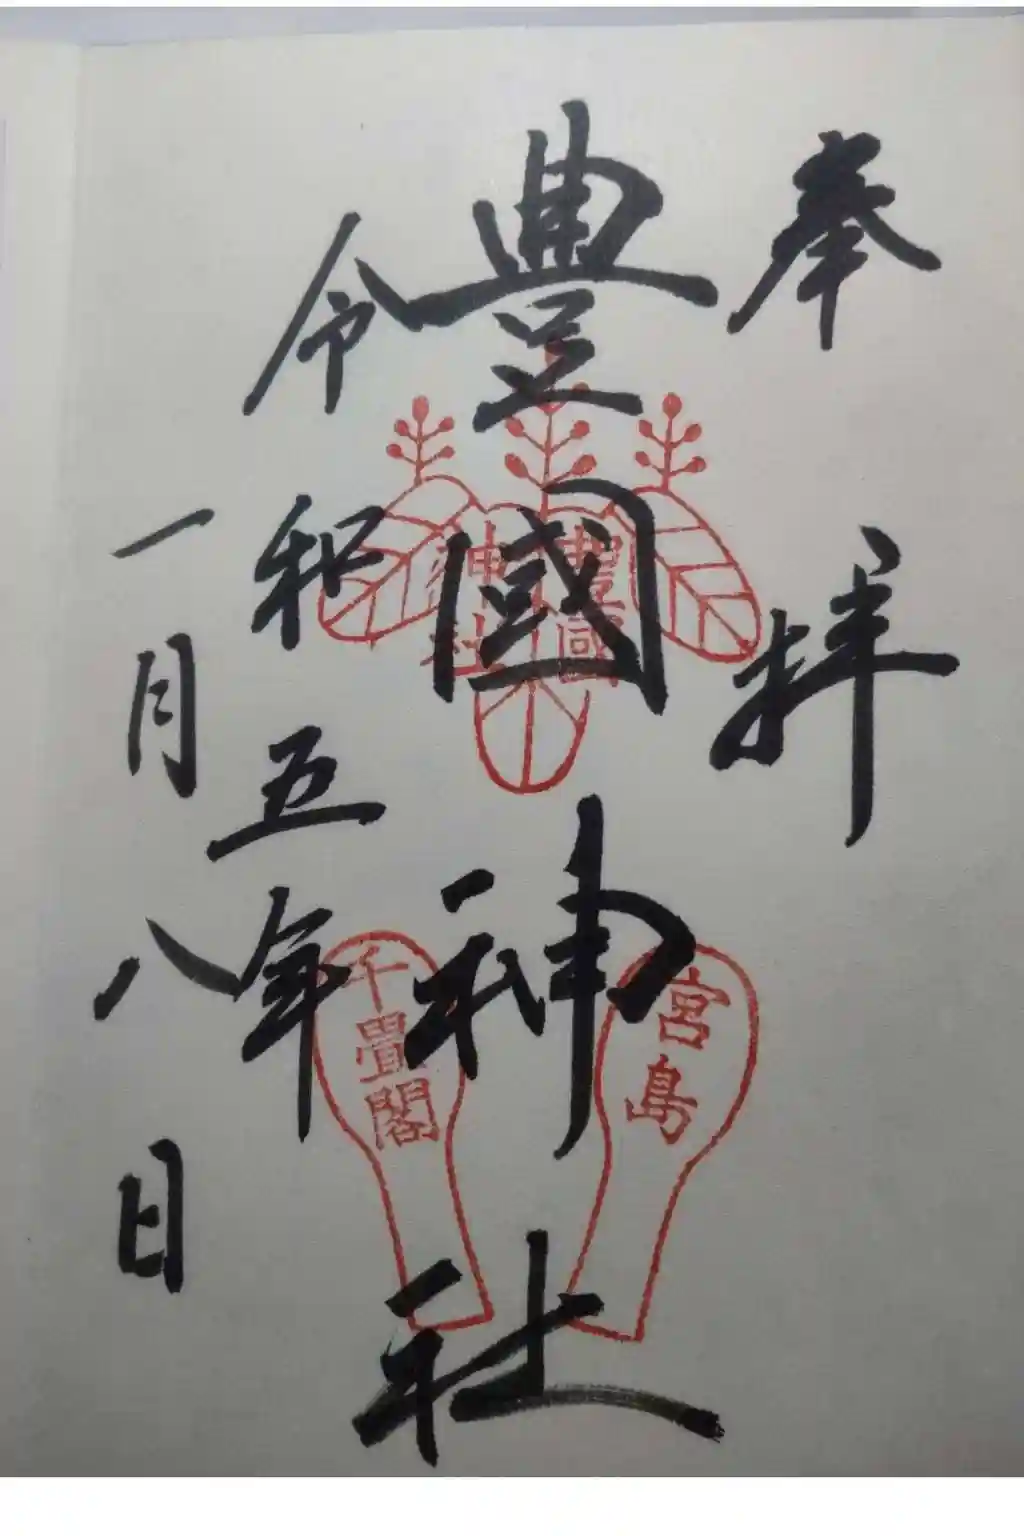 奉拝
豊國神社
令和五年
一月八日
豊國
神社
宮島
千畳閣